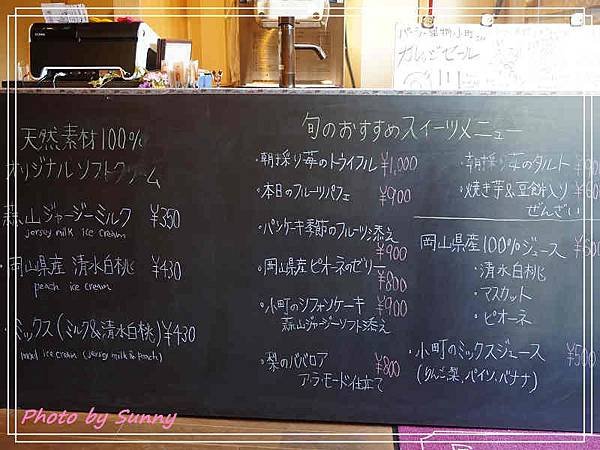 天然素材100%
オリジナルソフトクリーム
蒜山ジャージーミルク ¥350
jersey milk ice cream
・岡山県産 清水白桃 ¥430
peach ice cream
・ミックス(ミルク&清水白桃)¥430
ice cream (jersey milk & peach)
旬のおすすめスイーツメニュー
・朝採り苺のトライフル ¥1,000
・本日のフルーツパフェ ¥900
・パンケーキ季節のフルーツ添え
¥900
・岡山県産ピオーネのゼリー
¥800
・小町のシフォンケーキ ¥900
蒜山ジャージーソフト添え
・梨のババロア ¥800
ア・ラ・モード仕立て
・朝採り苺のタルト
・焼き芋&豆餅入り
ぜんざい
岡山県産100%ジュース
・清水白桃
・マスカット
・ピオーネ
・小町のミックスジュース ¥500
(りんご、梨、パイン、バナナ)
ガレージセール
Photo by Sunny